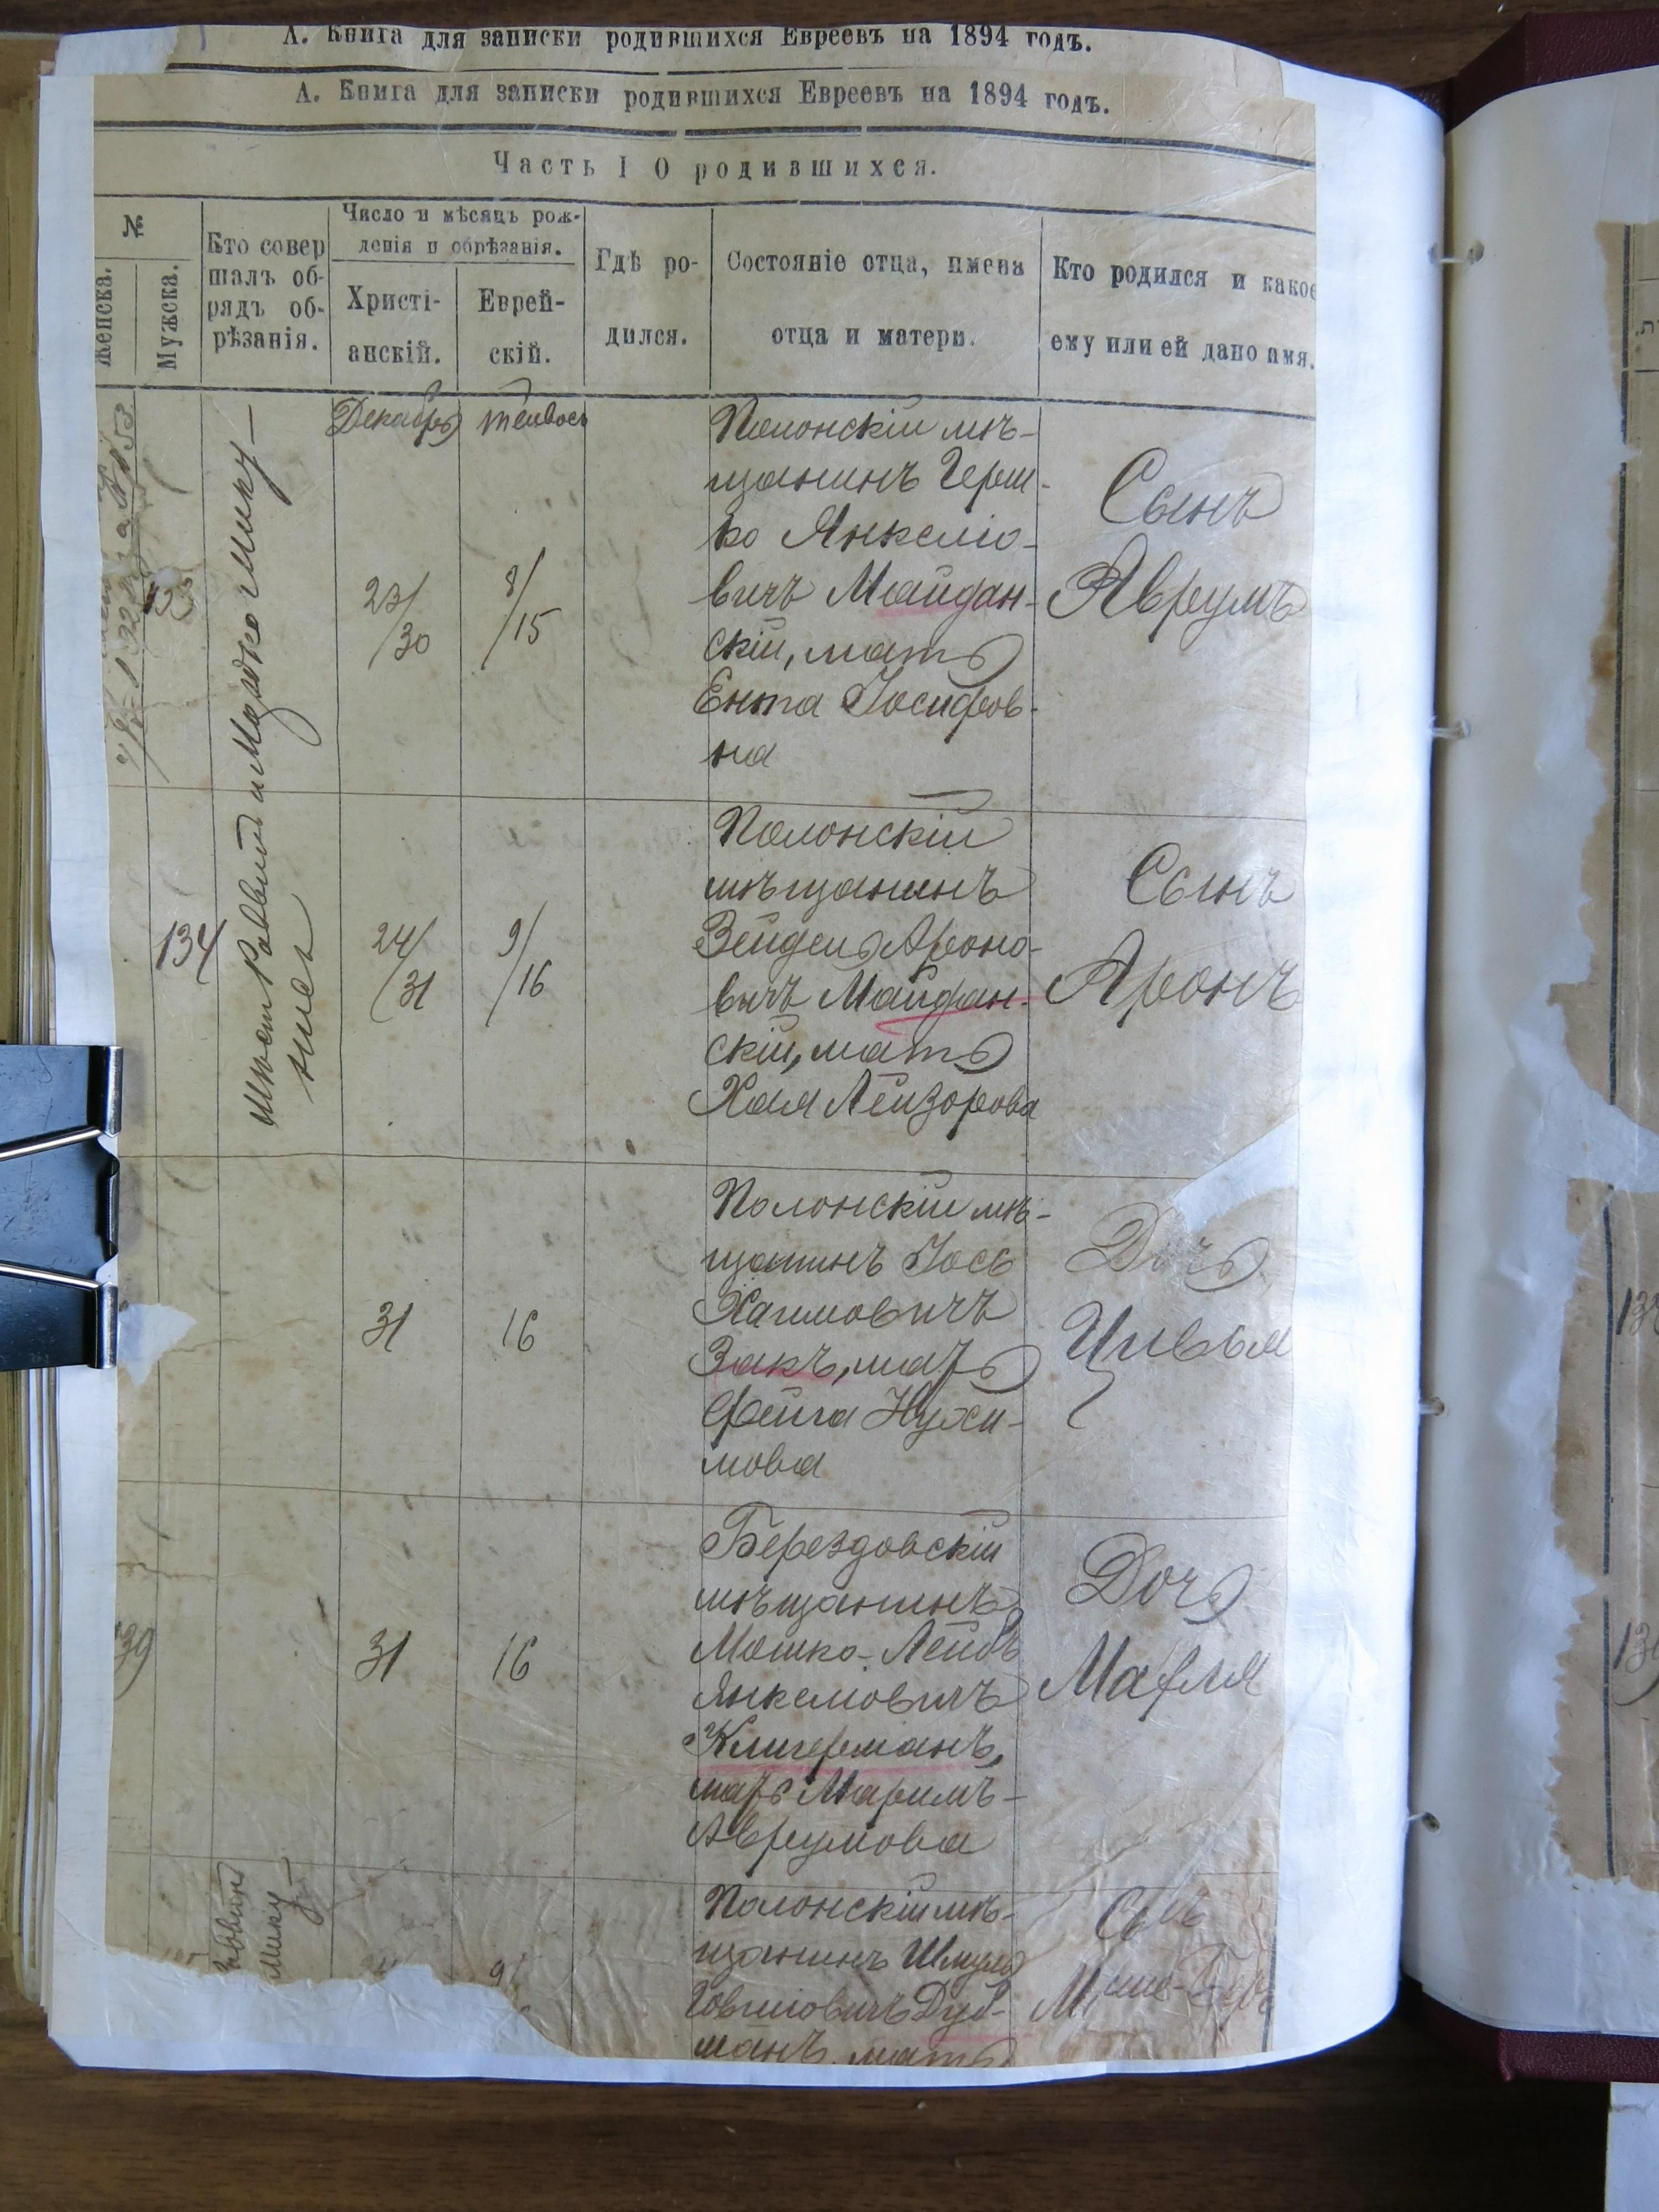 А. Книга для записки родившихся Евреевъ на 1894 годъ.
А. Книга для записки родившихся Евреевъ на 1894 годъ.
Часть I О родившихся.
№
Женска.
Мужска.
Кто совер
шалъ об-
рядъ об-
рѣзанія.
Число и мѣсяцъ рож-
денія и обрѣзанія.
Христі-
анскій.
Еврей-
скій.
Гдѣ ро-
дился.
Состояніе отца, имена
отца и матери.
Кто родился и какое
ему или ей дано имя.
Декабрь
Тейвось
23/
/30
8/
/15
Полонскій мѣ-
щанинъ Герш-
ко Янкеліо-
вичъ Майдан-
скій, мать
Ента Іосифов-
на
Сынъ
Аврумъ
134
24/
/31
9/
/16
Полонскій
мѣщанинъ
Зейдель Ароно-
вичъ Майдан-
скій, мать
Хая Лейзорова
Сынъ
Аронъ
31
16
Полонскій мѣ-
щанинъ Іось
Хаимовичъ
Закъ, мать
Фейга Нухи-
мова
Цивья
39
31
16
Берездовскій
мѣщанинъ
Мошко-Лейбъ
Янкелювичъ
Клигерманъ,
мать Маримъ-
Аврумова
Дочь
Маля
Полонскій мѣ-
щанинъ Шмуль
манъ, мать